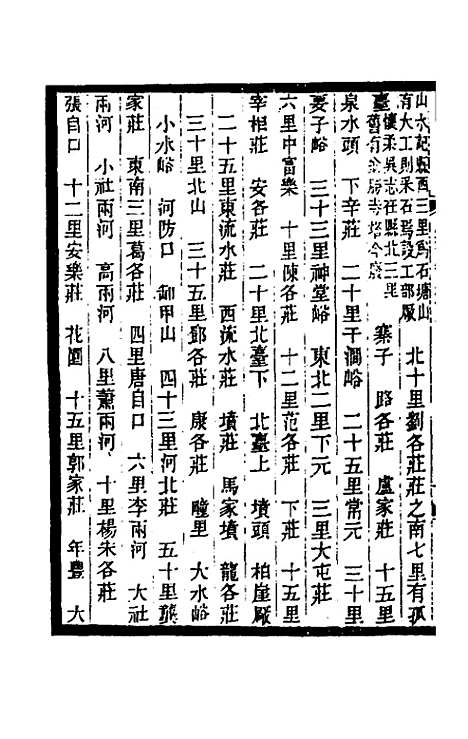 山水記縣西三里爲石塘山
有大工則采石爲設工部廠
北十里劉各莊莊之南七里有孤
懷柔吳志在縣北三里
臺舊有
寺塔今廢
寨子 路各莊 盧家莊 十五里
泉水頭 下辛莊 二十里干澗峪 二十五里常元 三十里
要子峪 三十三里神堂峪 東北二里下元 三里大屯莊
六里中富樂 十里陳各莊 十二里范各莊 下莊 十五里
宰相莊 安各莊 二十里北臺下 北臺上 墳頭 柏崖厰
二十五里東流水莊 西流水莊 墳莊 馬家墳 龍各莊
三十里北山 三十五里鄧各莊 康各莊 疃里 大水峪
小水峪 河防口 卸甲山 四十三里河北莊 五十里龔
家莊 東南三里葛各莊 四里唐自口 六里李兩河 大社
兩河 小社兩河 高兩河 八里蕭兩河 十里楊宋各莊
張自口 十二里安樂莊 花園 十五里郭家莊 年豐 大